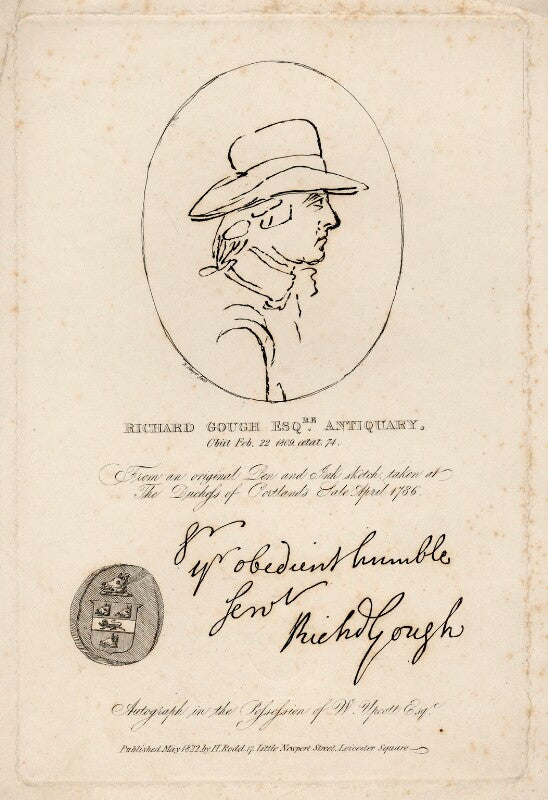 RICHARD GOUGH ESQ.RE ANTIQUARY.
Obiit Feb. 22 1809. ætat. 74.
From an original Pen and Ink sketch, taken at
The Duchess of Portlands Sale April 1786.
Sr
yr obedient humble
Servt
Richd Gough
Autograph in the Possession of W. Upcott Esqr.
Published May 1822 by H. Rodd 17 Little Newport Street, Leicester Square